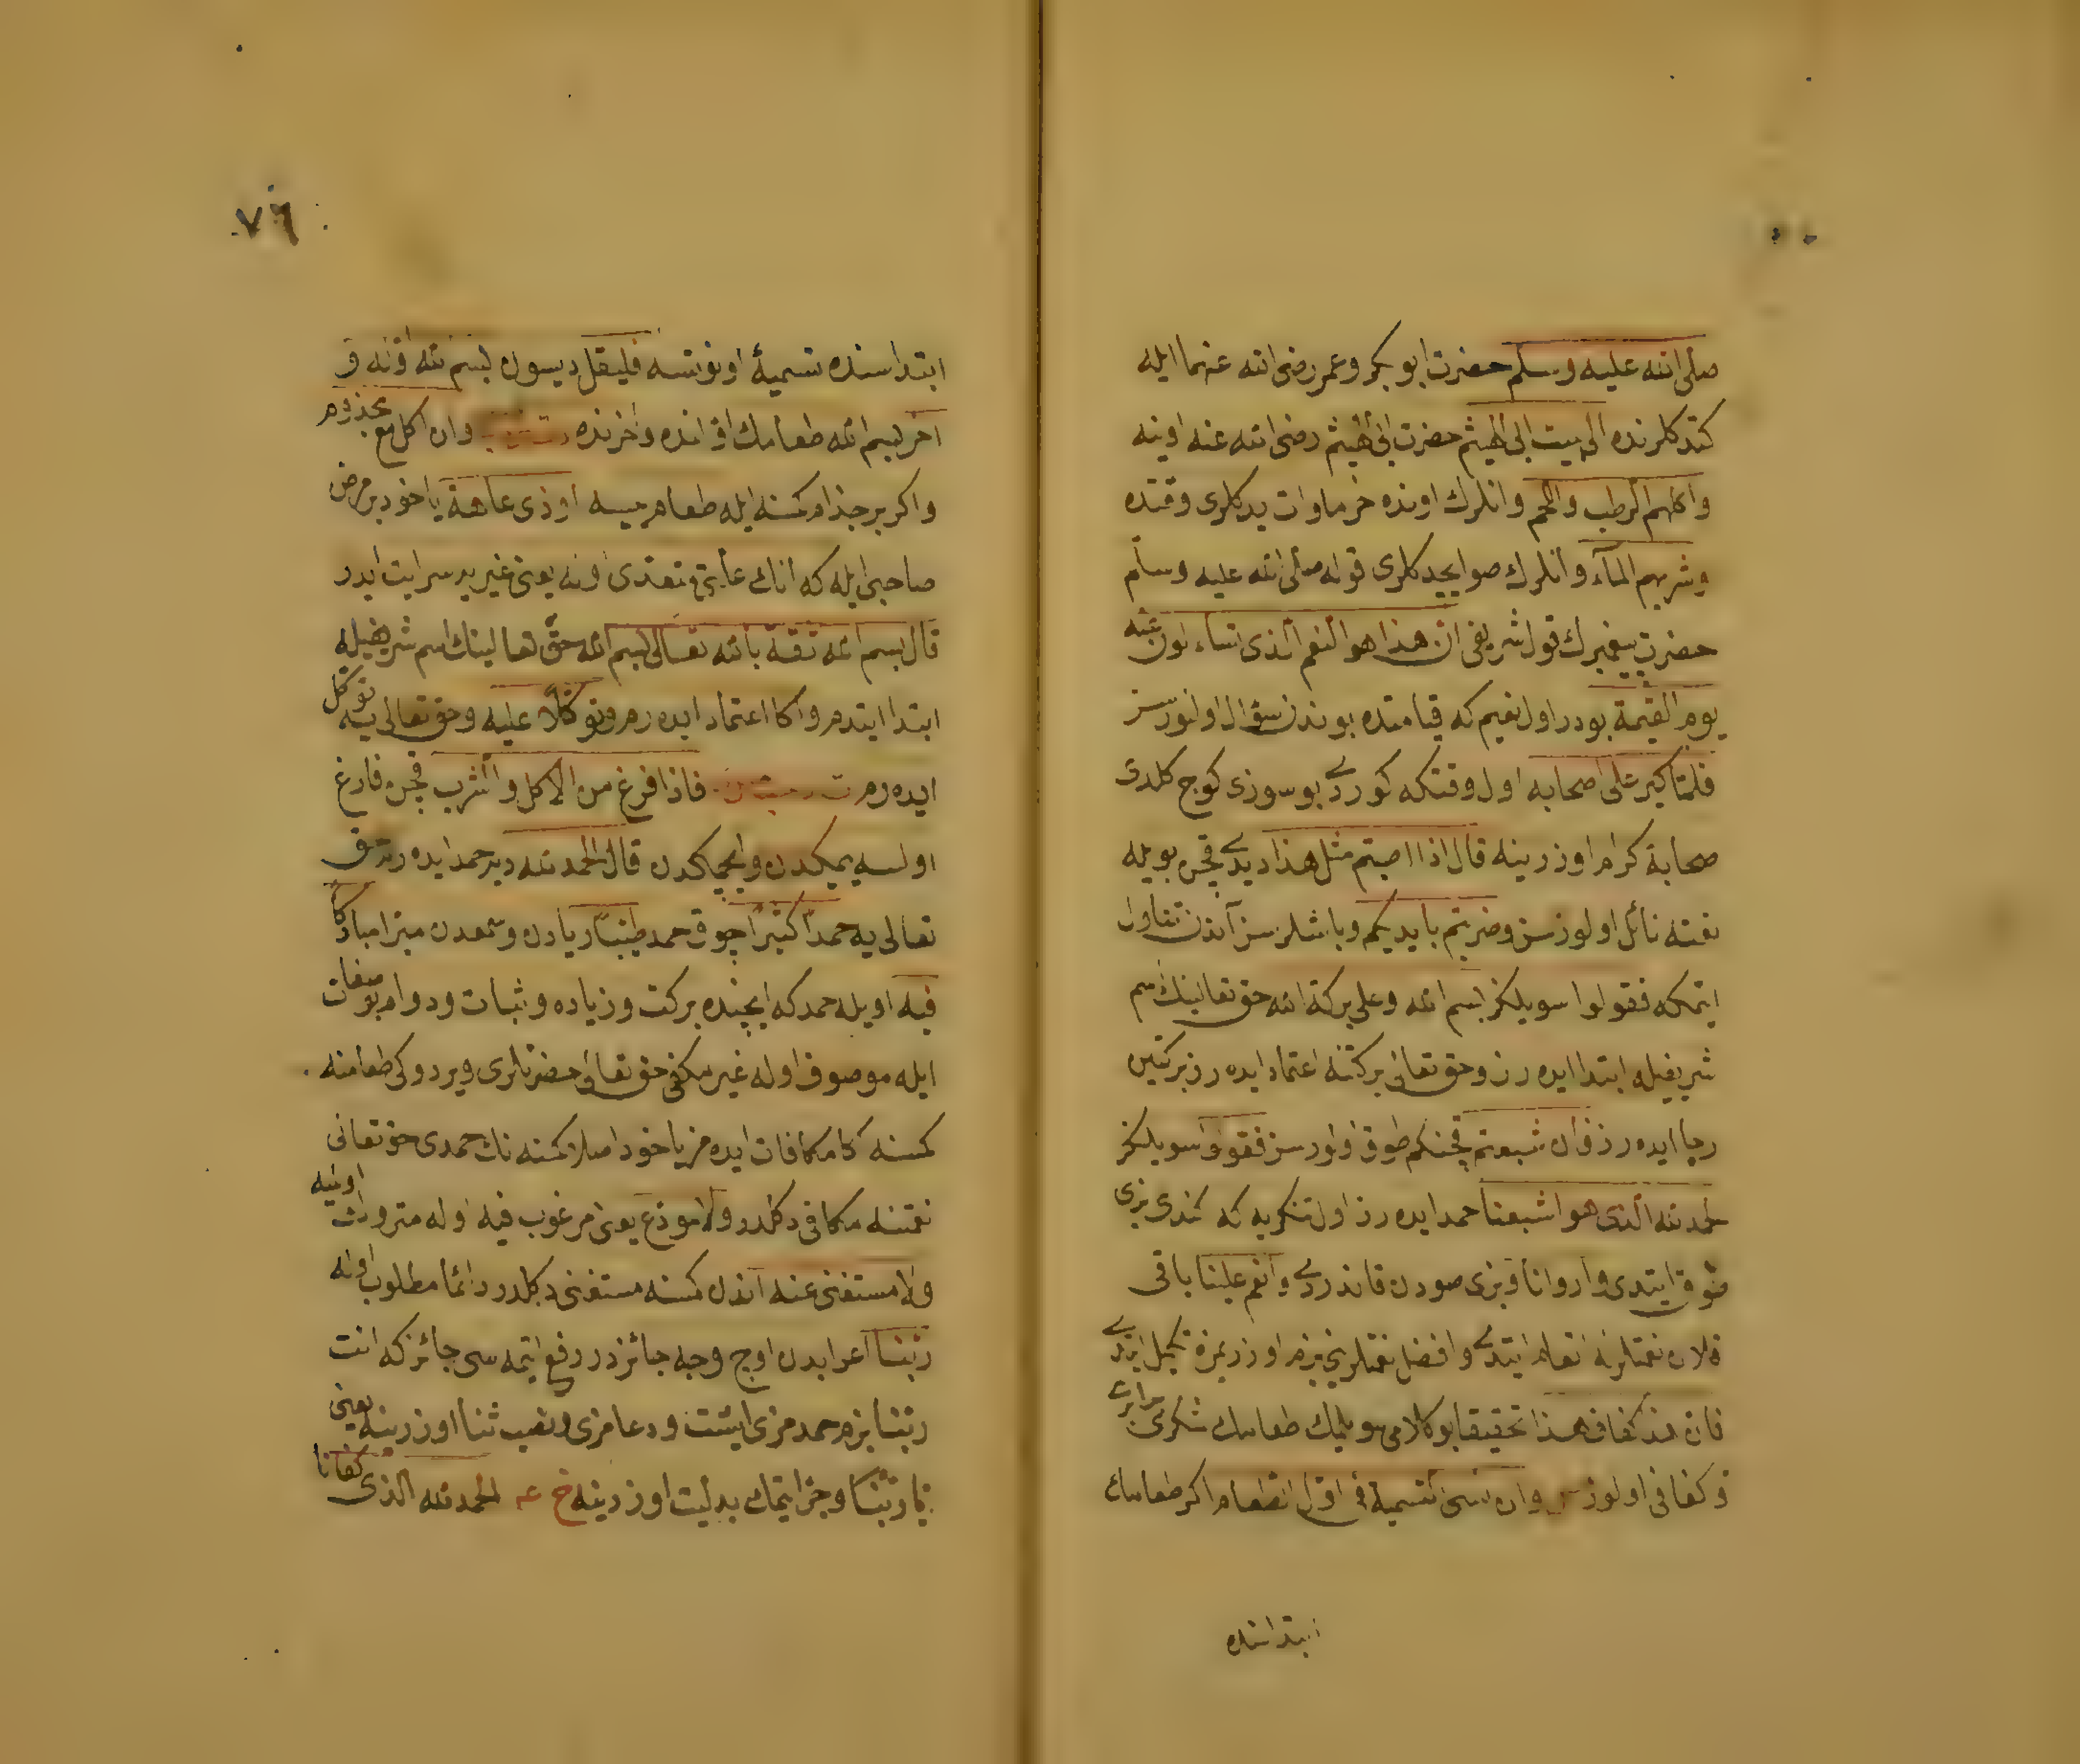 صلى الله عليه وسلم حضرت ابو بكر وعمر رضى الله عنهما ايله
كتدكلرنده الى بيت ابى الهيثم حضرت ابى الهيثم رضى الله عنه اوينه
واكلهم الرطب واللحم وانلرك اونده خرما وات يدكلرى وقتده
وشربهم الماء وانلرك صو ايچدكلرى قوله صلى الله عليه وسلم
حضرت پيغمبرك قول شريفى ان هذا هو النعيم الذى تسألون عنه
يوم القيمة بودر اول نعيم كه قيامتده بوندن سؤال اولنورسز
فلما كبر على اصحابه اول وقتكه كوردى بو سوزى كوج كلدى
صحابة كرام اوزرينه قال اذا اصبتم مثل هذا ديدى قچن بويله
نعمته نائل اولورسز وضربتم بايديكم وباشلرسز آندن تناول
ايتمكه فقولوا سويلكز بسم الله وعلى بركة الله حق تعالينك اسم
شريفيله ابتدا ايده رز وحق تعالى بركتنه اعتماد ايده رز بركتين
رجا ايده رز فان شبعتم قچنكم طوق اولورسز فقولوا سويلكز
الحمد لله الذى هو اشبعنا حمد ايده رز اول تنكريه كه كندى بزى
طوق ايتدى واروانا وبزى صودن قاندردى وانعم علينا باقى
قلان نعمتلرنه انعام ايتدى وافضل نعمتلرينى بزم اوزريمزه تكميل ايتدى
فان هذا كفاف هذا تحقيقا بو كلامى سويلمك طعامك شكرى برابرى
وكفافى اولور وان نسى التسمية فى اول الطعام اكر طعامك
ابتداسنده
٧٦
ابتداسنده تسميۀ اونوتسه فليقل ديسون بسم الله اوله و
آخره بسم الله طعامك اولنده وآخرنده وان اكل مع مجذوم
واكر بر جذام كمسنه ايله طعام يسه او ذى عاهة ياخود بر مرض
صاحبى ايله كه انك علتى متعدى اوله يعنى غيريه سرايت ايدر
قال بسم الله ثقة بالله تعالى بسم الله حق تعالينك اسم شريفيله
ابتدا ايتدم واكا اعتماد ايده رم وتوكلا عليه وحق تعالى يه توكل
ايده رم فاذا فرغ من الاكل والشرب قچن فارغ
اولسه يمكدن وايچمكدن قال الحمد لله دير حمد ايده رز حق
تعالى يه حمدا كثيرا چوق حمد طيبا ريادن وسمعدن مبرا مباركا
فيه اويله حمد كه ايچنده بركت وزياده وثبات ودوام بو صفات
ايله موصوف اوله غير مكفى حق تعالى حضرتلرى ويردوكى طعامنه
كمسنه اكا مكافات ايده مز ياخود اصلا كمسنه نك حمدى حق تعالى
نعمتنه مكافى دكلدر ولا مودع يعنى مرغوب فيه اوله متروك اولميه
ولا مستغنى عنه آندن كمسنه مستغنى دكلدر دائما مطلوب اوله
ربنا اعرابدن اوچ وجه جائزدر رفع ايتمه سى جائز كه انت
ربنا بزم حمدمزى ايشت ودعامزى ونصب ثنا اوزرينه يعنى
يا ربنا وجر ايتمك بدليت اوزرينه خ عه الحمد لله الذى كفانا